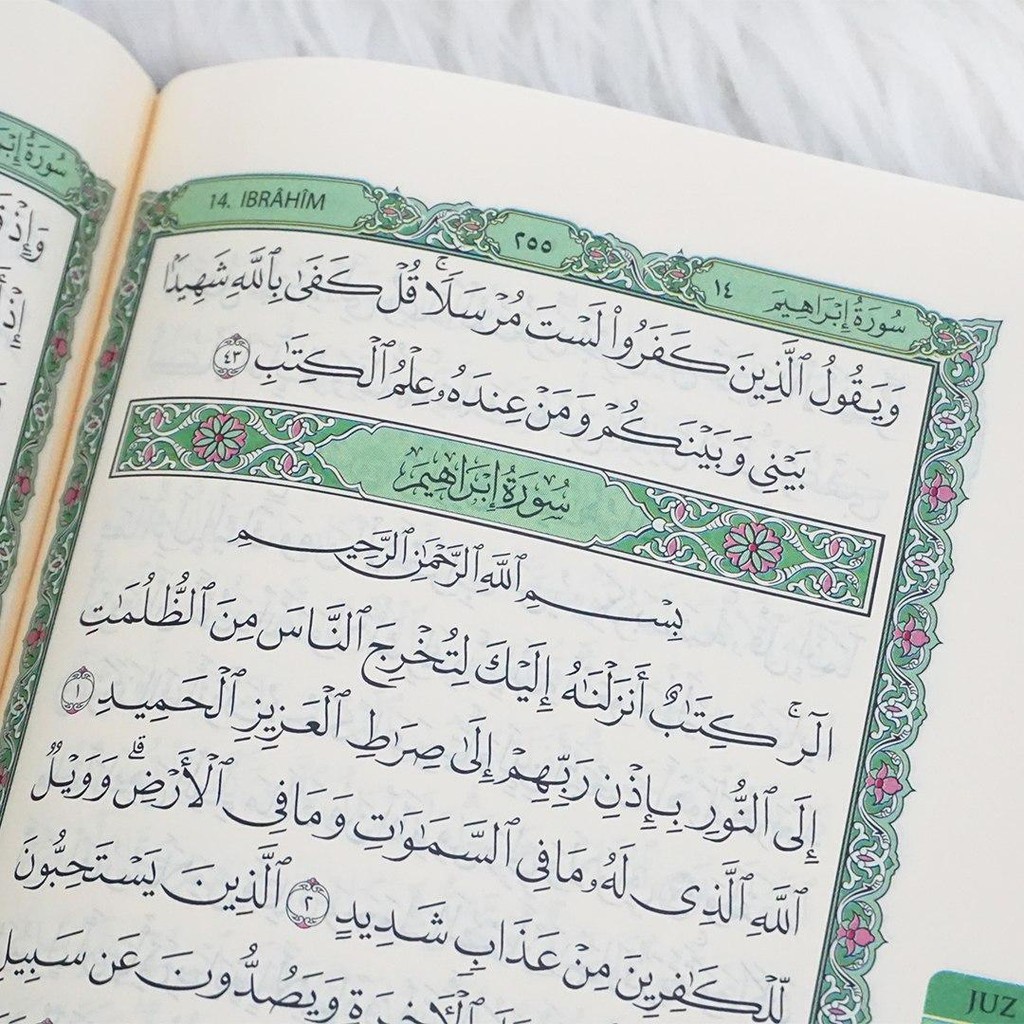 14. IBRÂHÎM
٢٥٥
سُورَةُ إِبْرَاهِيمَ ١٤
وَيَقُولُ ٱلَّذِينَ كَفَرُوا۟ لَسْتَ مُرْسَلًا ۚ قُلْ كَفَىٰ بِٱللَّهِ شَهِيدًۢا
بَيْنِى وَبَيْنَكُمْ وَمَنْ عِندَهُۥ عِلْمُ ٱلْكِتَٰبِ ٤٣
سُورَةُ إِبْرَاهِيمَ
بِسْمِ ٱللَّهِ ٱلرَّحْمَٰنِ ٱلرَّحِيمِ
الٓر ۚ كِتَٰبٌ أَنزَلْنَٰهُ إِلَيْكَ لِتُخْرِجَ ٱلنَّاسَ مِنَ ٱلظُّلُمَٰتِ
إِلَى ٱلنُّورِ بِإِذْنِ رَبِّهِمْ إِلَىٰ صِرَٰطِ ٱلْعَزِيزِ ٱلْحَمِيدِ ١
ٱللَّهِ ٱلَّذِى لَهُۥ مَا فِى ٱلسَّمَٰوَٰتِ وَمَا فِى ٱلْأَرْضِ ۗ وَوَيْلٌ
لِّلْكَٰفِرِينَ مِنْ عَذَابٍ شَدِيدٍ ٢ ٱلَّذِينَ يَسْتَحِبُّونَ
ٱلْءَاخِرَةِ وَيَصُدُّونَ عَن سَبِيلِ
JUZ